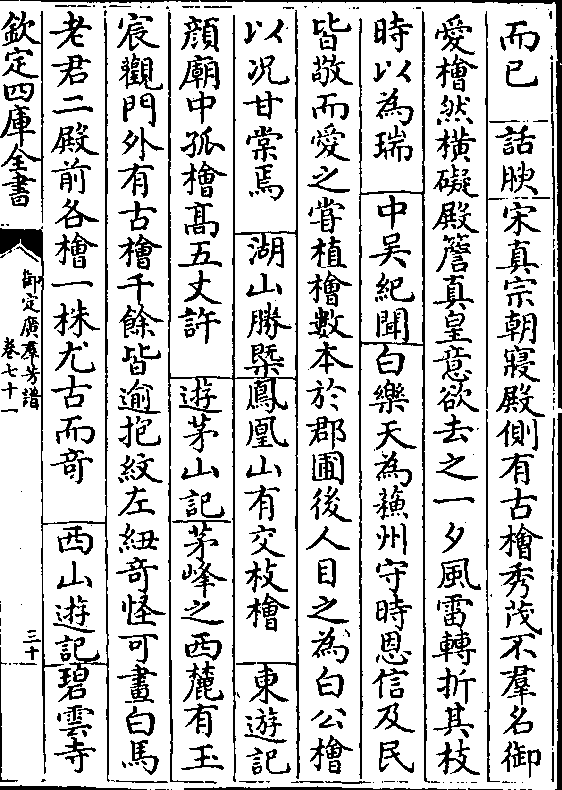 而已　話腴宋真宗朝寢殿側有古檜秀茂不羣名御
愛檜然橫礙殿簷真皇意欲去之一夕風雷轉折其枝
時以為瑞　中吳紀聞白樂天為蘇州守時恩信及民
皆敬而愛之嘗植檜數本於郡圃後人目之為白公檜
以况甘棠焉　湖山勝槩鳳凰山有交枝檜　東遊記
顔廟中孤檜髙五丈許　遊茅山記茅峰之西麓有玉
宸觀門外有古檜千餘皆逾抱紋左紐奇怪可畫白馬
老君二殿前各檜一株尤古而奇　西山遊記碧雲寺
欽定四庫全書
御定廣羣芳譜
卷七十一
三十